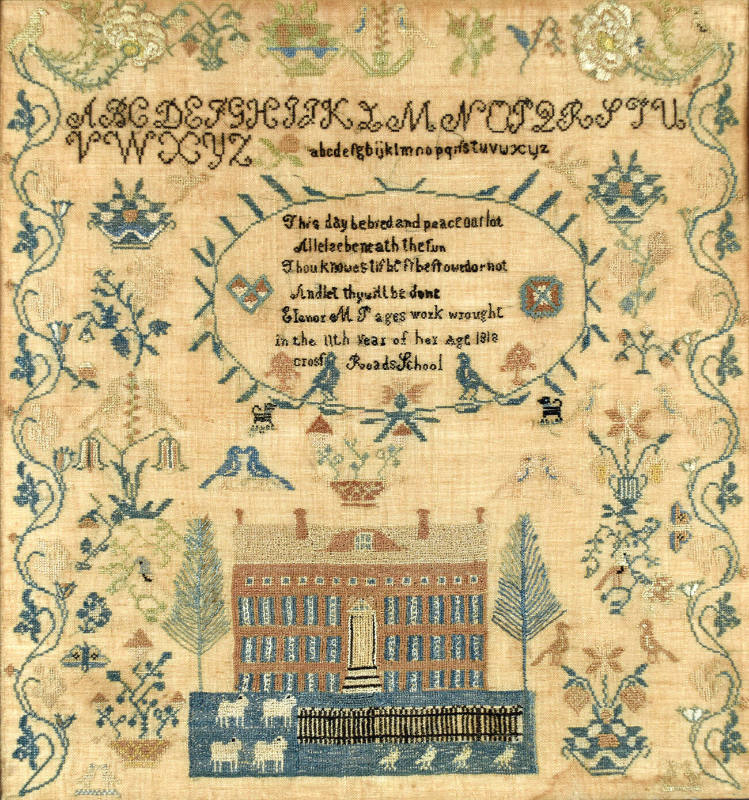 ABCDEFGHIJKLMNOPQRSTU
VWXYZ abcdefghijklmnopqrsſtuvwxyz
This day be bred and peace our lot
All elſe beneath the ſun
Thou knoweſt if beſt beſtowed or not
And let thy will be done
Elenor M Pages work wrought
in the 11th Year of her Age 1818
croſſ Roads School